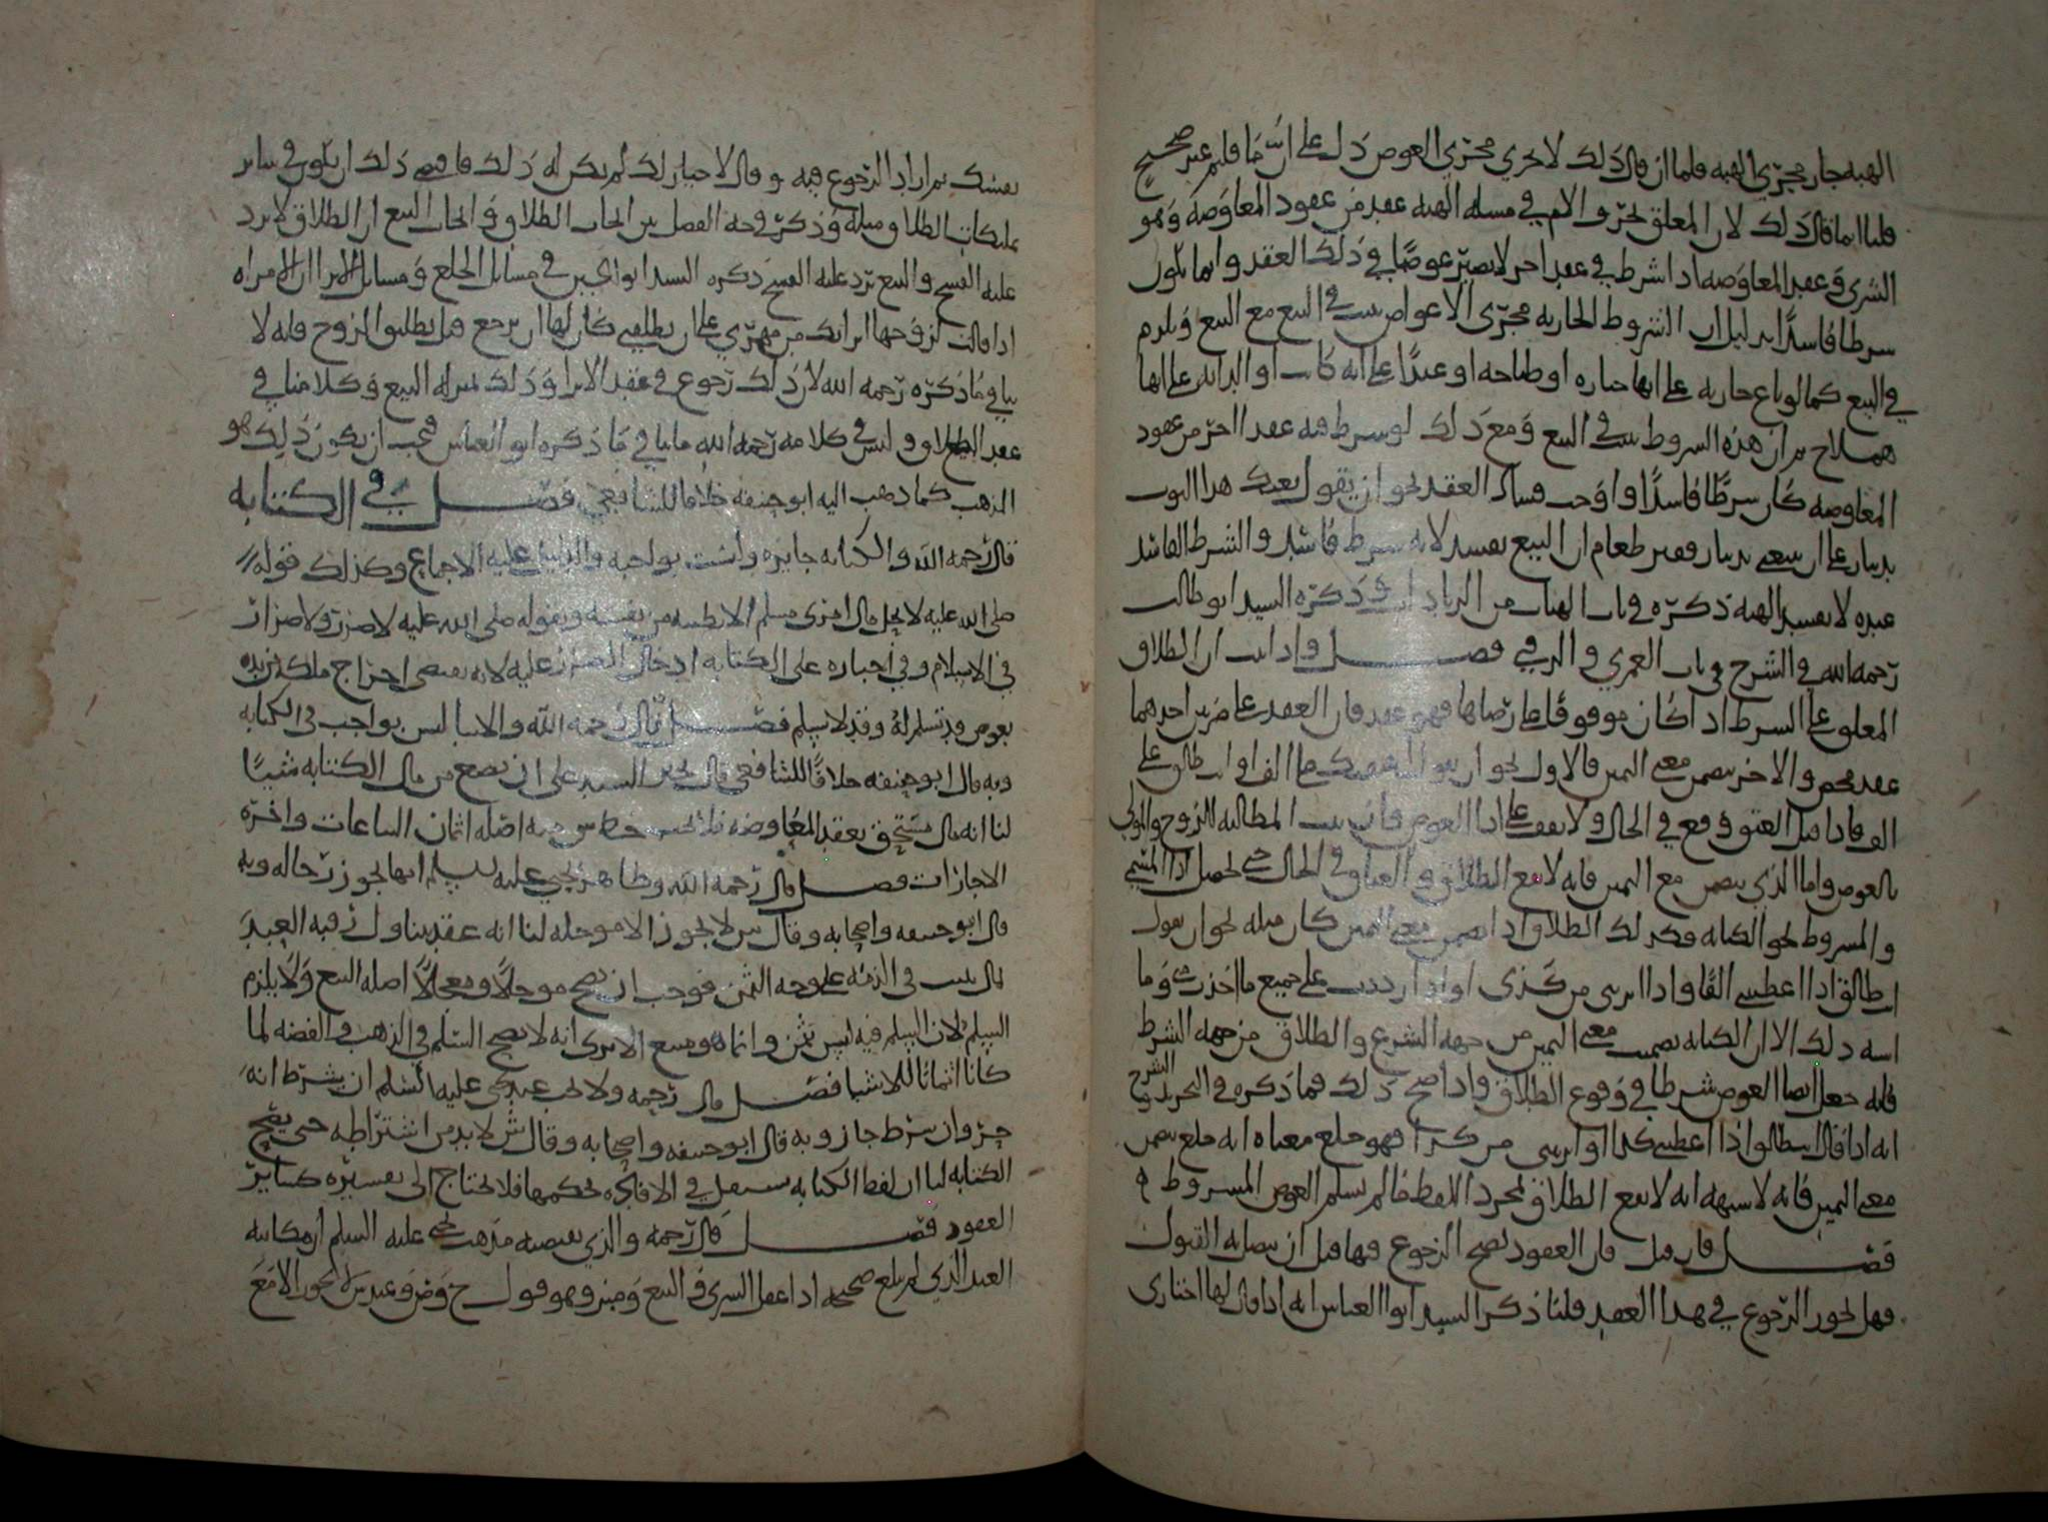 الهبه جار مجرى الهبه فلما ان قال ذلك لا يجري مجرى العوض دل على ان ما قلتم غير صحيح
قلنا انما قال ذلك لان المعلق بخر والام في مسله الهبه عقد من عقود المعاوضه وهو
الشرى وعقد المعاوضه اذا شرط في عقد اخر لا يصير عوضا في ذلك العقد وانما يكون
شرطا فاسدا بدليل ان الشروط الجاريه مجرى الاعواض يثبت في البيع مع البيع ويلزم
في البيع كما لو باع جاريه على انها خبازه او طباخه او عبدا على انه كاتب او الدابه على انها
هملاج ان هذه الشروط يثبت في البيع ومع ذلك لو شرط فيه عقدا اخر من عقود
المعاوضه كان شرطا فاسدا واوجب فساد العقد نحو ان يقول بعتك هذا الثوب
بدينار على ان تبيعني بدينار وقفيز طعام ان البيع يفسد لانه شرط فاسد والشرط الفاسد
عنده لا يفسد الهبه ذكره في باب الهبات من الزيادات وذكره السيد ابو طالب
رحمه الله في الشرح في باب العمرى والرقبى فصل واذا ثبت ان الطلاق
المعلق على الشرط اذا كان موقوفا على رضاها فهو عقد فان العقد على ضربين احدهما
عقد محض والاخر يضمن معنى اليمين فالاول نحو ان يقول لعبده على الف او انت طالق على
الف فاذا قبل العتق وقع في الحال ولا يقف على ادا العوض وان ثبت المطالبه للزوج والمولى
بالعوض واما الذي يضمن مع اليمين فانه لا يقع الطلاق والعتاق في الحال حتى يحصل ادا المسمى
والمشروط نحو الكتابه فكذلك الطلاق اذا يضمن معنى اليمين كان مثله نحو ان يقول
انت طالق اذا اعطيتني الفا واذا ابريتني من كذى او اذا رددت علي جميع ما اخذت وما
اشبه ذلك الا ان الكتابه تضمنت معنى اليمين من جهه الشرع والطلاق من جهه الشرط
فانه جعل ايضا العوض شرطا في وقوع الطلاق واذا صح ذلك فما ذكره في التحرير والشرح
انه اذا قال انت طالق اذا اعطيتني كذا او ابريتني من كذا فهو خلع معناه انه خلع يضمن
معنى اليمين فانه لا شبهه انه لا يقع الطلاق بمجرد اللفظ فما لم يسلم العوض المشروط
فصل فان قيل فان العقود يصح الرجوع فيها قبل ان يتصل به القبول
فهل يجوز الرجوع في هذا العقد قلنا ذكر السيد ابو العباس انه اذا قال لها اختاري
نفسك ثم اراد الرجوع فيه وقال لا خيار لك لم يكن له ذلك فاقتضى ذلك ان يكون في سائر
تمليكات الطلاق مثله وذكر في حد الفصل بين الجاب الطلاق والجاب البيع ان الطلاق لا يرد
عليه الفسخ والبيع يرد عليه الفسخ ذكره السيد ابو الحسين في مسائل الخلع ومسائل الابرا ان الامراه
اذا قالت لزوجها ابراتك من مهري على ان تطلقني كان لها ان ترجع قبل تطليق الزوج فانه لا
ينافي ما ذكره رحمه الله لان ذلك رجوع في عقد الابرا وذلك بمنزله البيع وكلامنا في
عقد الطلاق وليس في كلامه رحمه الله ما ينافي ما ذكره ابو العباس فيجب ان يكون ذلك هو
المذهب كما ذهب اليه ابو حنيفه خلافا للشافعي فصل في الكتابه
قال رحمه الله والكتابه جايزه وليست بواجبه والدليل عليه الاجماع وكذلك قوله
صلى الله عليه لا يحل مال امرى مسلم الا بطيبه من نفسه وبقوله صلى الله عليه لا ضرر ولا ضرار
في الاسلام وفي اجباره على الكتابه ادخال الضرر عليه لانه يقتضي اخراج ملكه من يده
بعوض قد تسلم له وقد لا يسلم فصل قال رحمه الله والايتا ليس بواجب في الكتابه
وبه قال ابو حنيفه خلافا للشافعي قال يجبر السيد على ان يضع من مال الكتابه شيئا
لنا انه مال مستحق بعقد المعاوضه فلا يجب حط شي منه اصله اثمان البياعات واجره
الاجارات فصل قال رحمه الله وظاهر يحيى عليه السلم انها تجوز حاله وبه
قال ابو حنيفه واصحابه وقال ش لا تجوز الا موجله لنا انه عقد يتناول رقبه العبد
بمال يثبت في الذمه على وجه الثمن فوجب ان يصح موجلا ومعجلا اصله البيع ولا يلزم
السلم لان السلم فيه ليس بثمن وانما هو مبيع الا ترى انه لا يصح السلم في الذهب والفضه لما
كانا اثمانا للاشيا فصل قال رحمه ولا يجب عند يحيى عليه السلم ان يشرط انه
حر وان شرط جاز وبه قال ابو حنيفه واصحابه وقال ش لا بد من اشتراطه حتى يصح
الكتابه لنا ان لفظ الكتابه يستعمل في الافاده بحكمها فلا يحتاج الى تفسيره كسائر
العقود فصل قال رحمه والذي يقتضيه مذهب يحيى عليه السلم ان مكاتبه
العبد الذي لم يبلغ صحيحه اذا عقل الشرى والبيع وميز وهو قول ح وص وعند ش لا يجوز الا مع